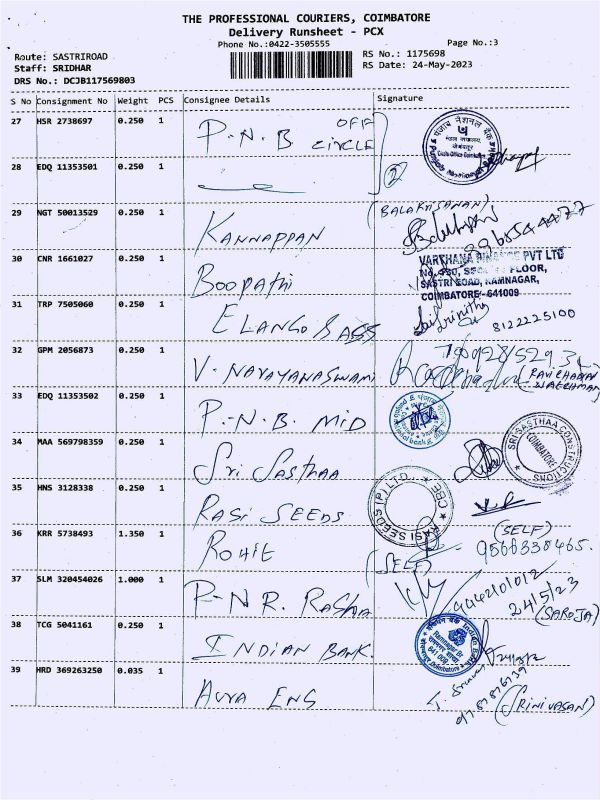 THE PROFESSIONAL COURIERS, COIMBATORE
Delivery Runsheet - PCX
Phone No.:0422-3505555
Page No.:3
Route: SASTRIROAD
RS No.: 1175698
Staff: SRIDHAR
RS Date: 24-May-2023
DRS No.: DCJB117569803
S No Consignment No Weight PCS Consignee Details Signature
27 HSR 2738697 0.250 1 P.N.B OFF CIRCLE
28 EDQ 11353501 0.250 1
2
(BALAKRISHNAN)
29 NGT 50013529 0.250 1 KANNAPPAN
30 CNR 1661027 0.250 1 Boopathi
VARTHANA FINANCE PVT LTD
No.480, SECOND FLOOR,
SASTRI ROAD, RAMNAGAR,
COIMBATORE-641009
31 TRP 7505060 0.250 1 ELANGO & ASS
8122225100
32 GPM 2056873 0.250 1 V. NARAYANASWAMI
33 EDQ 11353502 0.250 1 P.N.B. MID
34 MAA 569798359 0.250 1 Sri Sasthaa
SRI SASTHAA CONSTRUCTIONS
COIMBATORE
35 HNS 3128338 0.250 1 RASI SEEDS
RASI SEEDS (P) LTD., CBE
(SELF)
36 KRR 5738493 1.350 1 ROHIT
9566338465.
(SELF)
37 SLM 320454026 1.000 1 P.N.R. Rasha
9442101012
24/5/23
(SAROJA)
38 TCG 5041161 0.250 1 INDIAN BANK.
39 HRD 369263250 0.035 1 AUVA ENG
(SRINIVASAN)